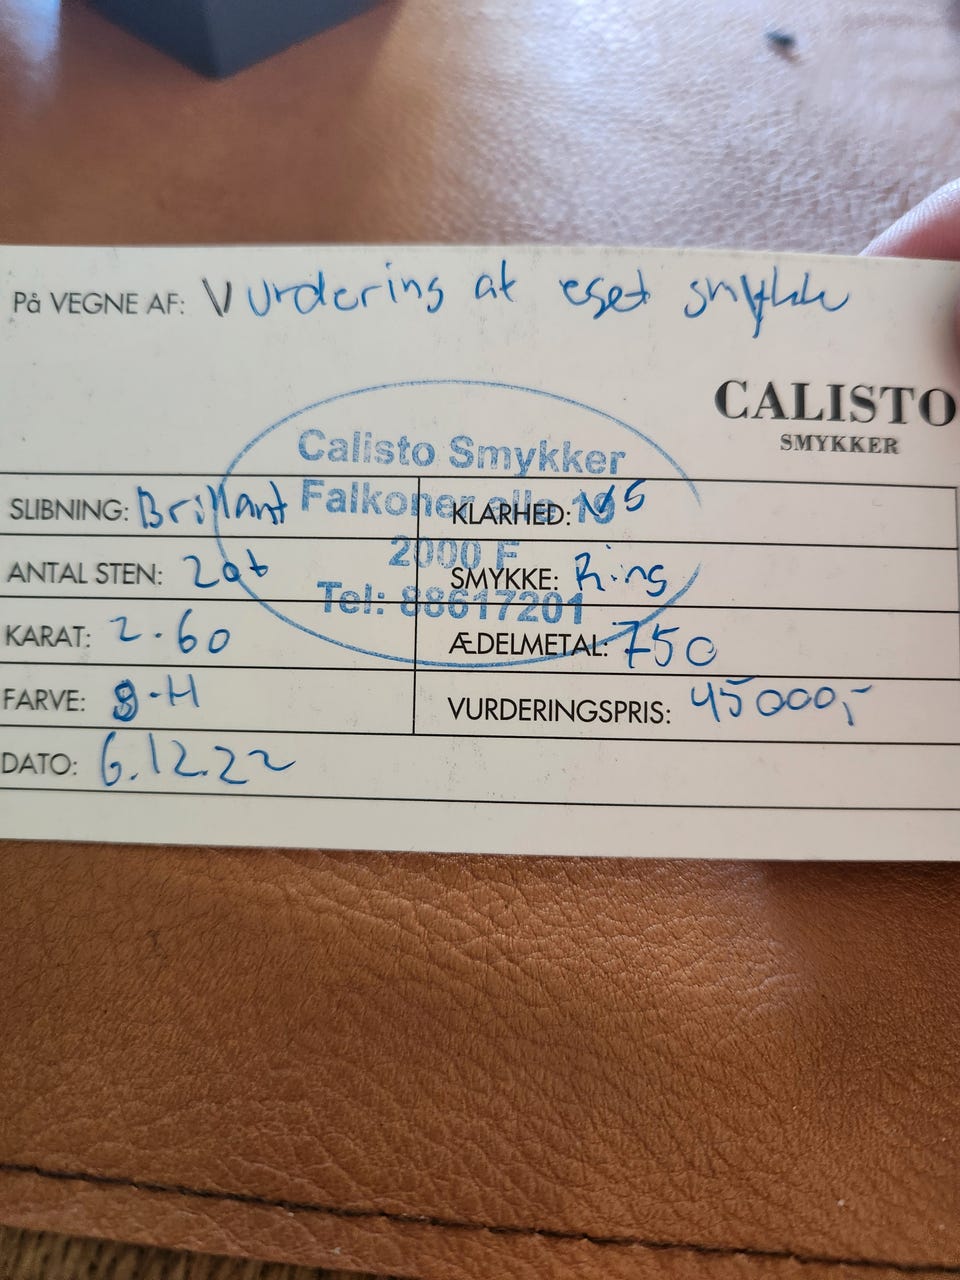 På VEGNE AF: Vurdering af eget smykke
CALISTO
SMYKKER
Calisto Smykker
Falkoner alle 19
2000 F
Tel: 88617201
SLIBNING: Brillant
KLARHED:
ANTAL STEN:
SMYKKE: Ring
KARAT: 2.60
ÆDELMETAL: 750
FARVE: g-H
VURDERINGSPRIS: 45000,-
DATO: 6.12.22